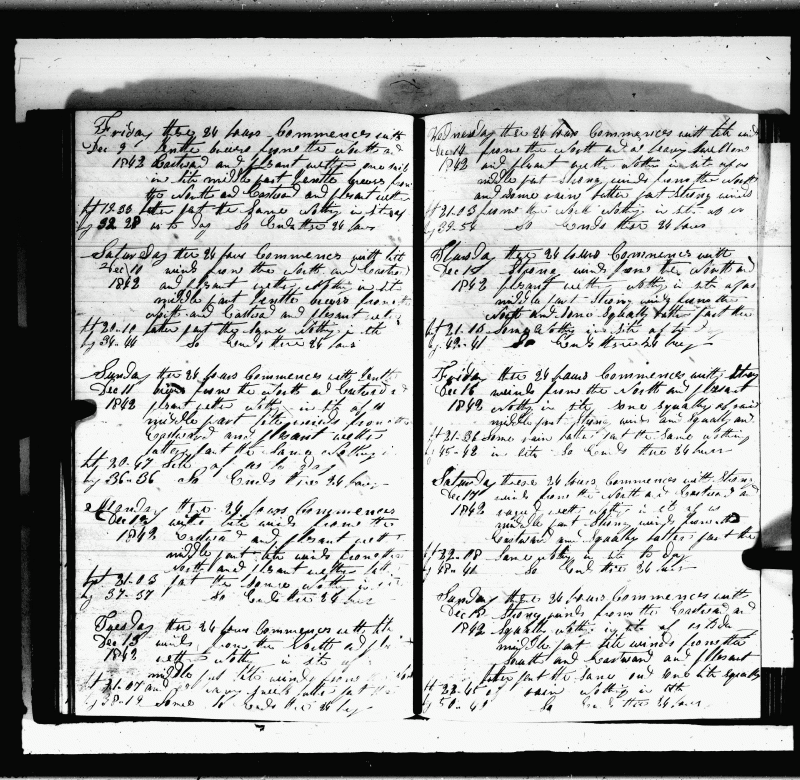 Friday these 24 hours Commences with
Dec 9 Gentle breeses from the North and
1842 Eastward and plesant wether one sail
in site middle part Gentle breeses from
the North and Eastward and plesant wether
lt 19-33 later part the Same Nothing in site
lg 32 28 to day So Ends these 24 hours
Saturday these 24 hours Commences with lite
Dec 10 winds from the North and Eastward
1842 and plesant wether Nothing in site
middle part Gentle breeses from the
and Eastward and plesant wether
lt 20-10 later part the Same Nothing in site
lg 34-44 So Ends these 24 hours
Sunday these 24 hours Commences with Gentle
Dec 11 breeses from the North and Eastward
1842 plesant wether nothing in site
middle part lite winds from the
Eastward and plesant wether
latter part the Same Nothing in
lt 20-47 Site
lg 36-36 So Ends these 24 hours
Monday these 24 hours Commences
Dec 12 with lite winds from the
1842 Eastward and plesant wether
middle part lite winds from the
North and plesant wether
lt 21-03 part the Same Nothing in site
lg 37-37 So Ends these 24 hours
Tuesday these 24 hours Commences with lite
Dec 13 winds from the North and
1842 wether nothing in site
middle part lite winds from
lt 21-07 and later part the
lg 38-19 Same So Ends these 24 hours
Wednesday these 24 hours Commences with lite winds
Dec 14 from the North and a heavy Swell on
1842 and plesant wether nothing in site
middle part Strong winds from the North
and some rain latter part Strong winds
lt 21-03 from the North Nothing in site
lg 39-56 So Ends these 24 hours
these 24 hours Commences with
Dec 15 Strong winds from the North and
1842 plesant wether nothing in site
middle part Strong winds from the
North and Some Squally latter part the
lt 21-10 Same Nothing in site
lg 42-41 So Ends these 24 hours
Friday these 24 hours Commences with Strong
Dec 16 winds from the North and plesant
1842 Nothing in site some squally of rain
middle part Strong winds and Squally and
lt 21-36 some rain latter part the Same nothing
lg 45-42 in site So Ends these 24 hours
Saturday these 24 hours Commences with Strong
Dec 17 winds from the North and Eastward and
1842 wether nothing in site
middle part Strong winds from the
Eastward and Squally latter part the
lt 22-08 Same nothing in site to Day
lg 48-44 So Ends these 24 hours
Sunday these 24 hours Commences with
Dec 18 Strong winds from the Eastward and
1842 Squally nothing in site
middle part lite winds from the
South and Eastward and plesant
later part the Same and some lite Squally
lt 23-45 of rain Nothing in site
lg 50-42 So Ends these 24 hours